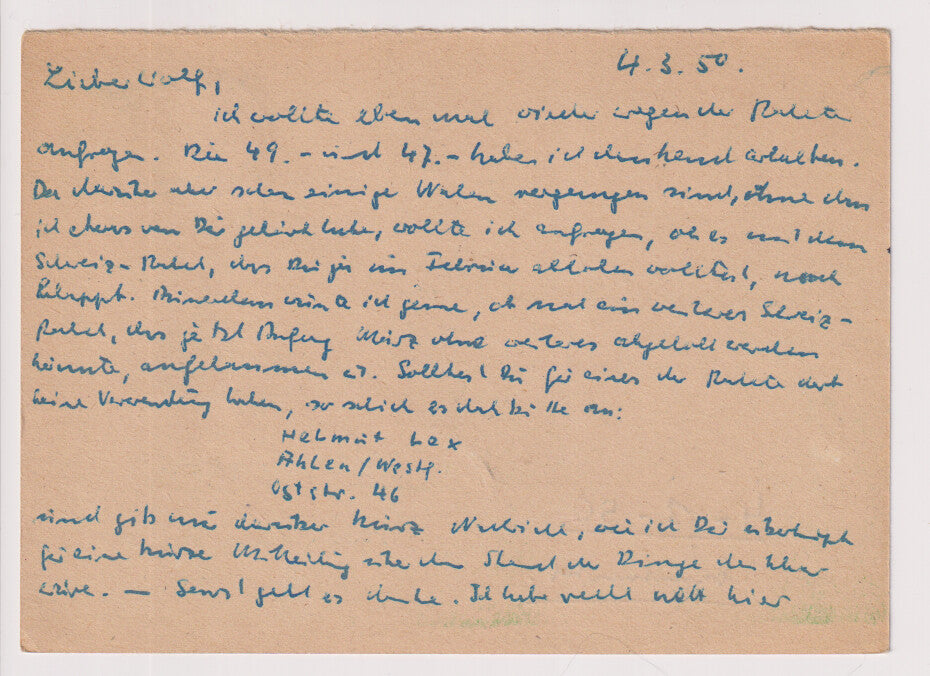 4. 3. 50.
Lieber Wolf,
ich wollte eben mal wieder wegen der Pakete
anfragen. Die 49.- und 47.- habe ich dankend erhalten.
Da darüber aber schon einige Wochen vergangen sind, ohne dass
ich etwas von Dir gehört habe, wollte ich anfragen, ob es mit dem
Schweiz-Paket, das Du ja im Februar abholen wolltest, noch
klappt. Ausserdem wüsste ich gerne, ob mal ein weiteres Schweiz-
Paket, das jetzt Anfang März ohne weiteres abgeholt werden
könnte, angekommen ist. Solltest Du für eines der Pakete dort
keine Verwendung haben, so schick es doch bitte an:
Helmut Lex
Ahlen/Westf.
Oststr. 46
und gib mir darüber kurz Nachricht, wie ich Dir überhaupt
für eine kurze Mitteilung über den Stand der Dinge dankbar
wäre. — Sonst geht es danke. Ich habe recht nett hier